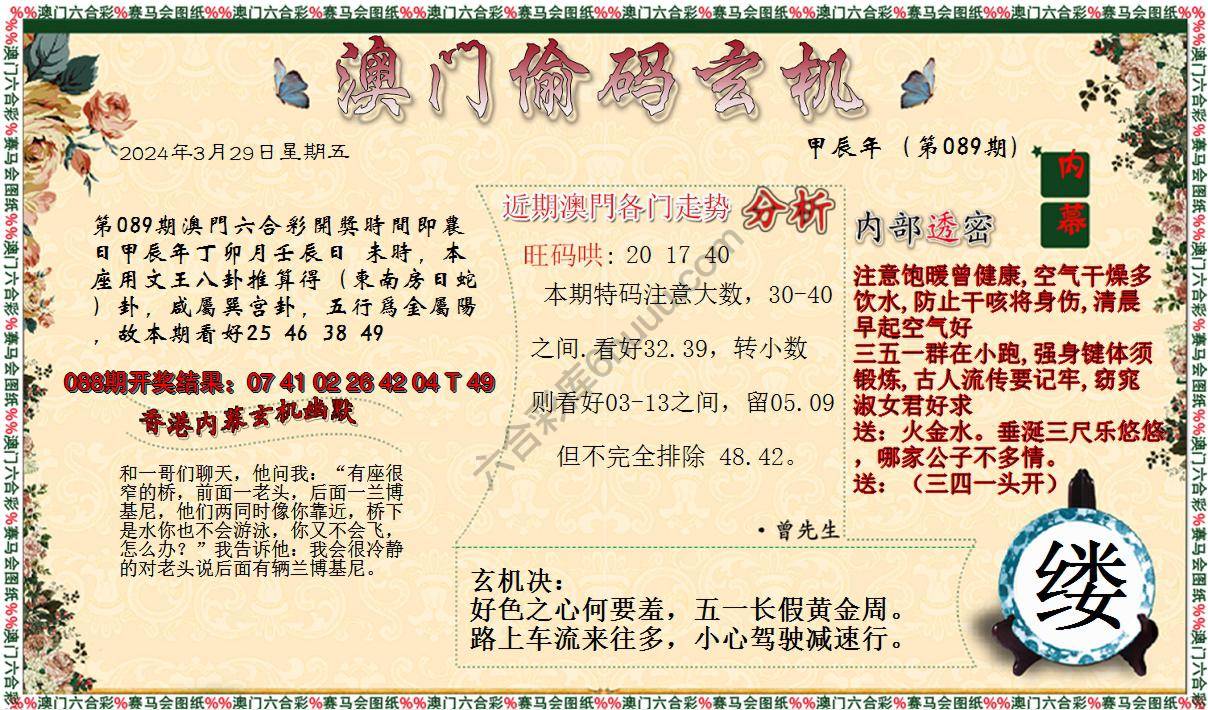 %%澳门六合彩%赛马会图纸%%澳门六合彩%赛马会图纸%%澳门六合彩%赛马会图纸%%澳门六合彩%赛马会图纸%%澳门六合彩%赛马会图纸%%澳门六合彩%赛马会图纸%%
澳门偷码玄机
2024年3月29日星期五
甲辰年（第089期）
内幕
第089期澳門六合彩開獎時間即農
日甲辰年丁卯月壬辰日 未時，本
座用文王八卦推算得（東南房日蛇
）卦，咸屬巽宫卦，五行爲金屬陽
，故本期看好25 46 38 49
088期开奖结果：07 41 02 26 42 04 T 49
香港内幕玄机幽默
和一哥们聊天，他问我：“有座很
窄的桥，前面一老头，后面一兰博
基尼，他们两同时像你靠近，桥下
是水你也不会游泳，你又不会飞，
怎么办？”我告诉他：我会很冷静
的对老头说后面有辆兰博基尼。
近期澳門各门走势 分析
旺码哄: 20 17 40
本期特码注意大数，30-40
之间.看好32.39，转小数
则看好03-13之间，留05.09
但不完全排除 48.42。
·曾先生
内部透密
注意饱暖曾健康,空气干燥多
饮水,防止干咳将身伤,清晨
早起空气好
三五一群在小跑,强身键体须
锻炼,古人流传要记牢,窈窕
淑女君好求
送：火金水。垂涎三尺乐悠悠
，哪家公子不多情。
送：（三四一头开）
玄机决：
好色之心何要羞，五一长假黄金周。
路上车流来往多，小心驾驶减速行。
缕
%%澳门六合彩%赛马会图纸%%澳门六合彩%赛马会图纸%%澳门六合彩%赛马会图纸%%澳门六合彩%赛马会图纸%%澳门六合彩%赛马会图纸%%澳门六合彩%赛马会图纸%%